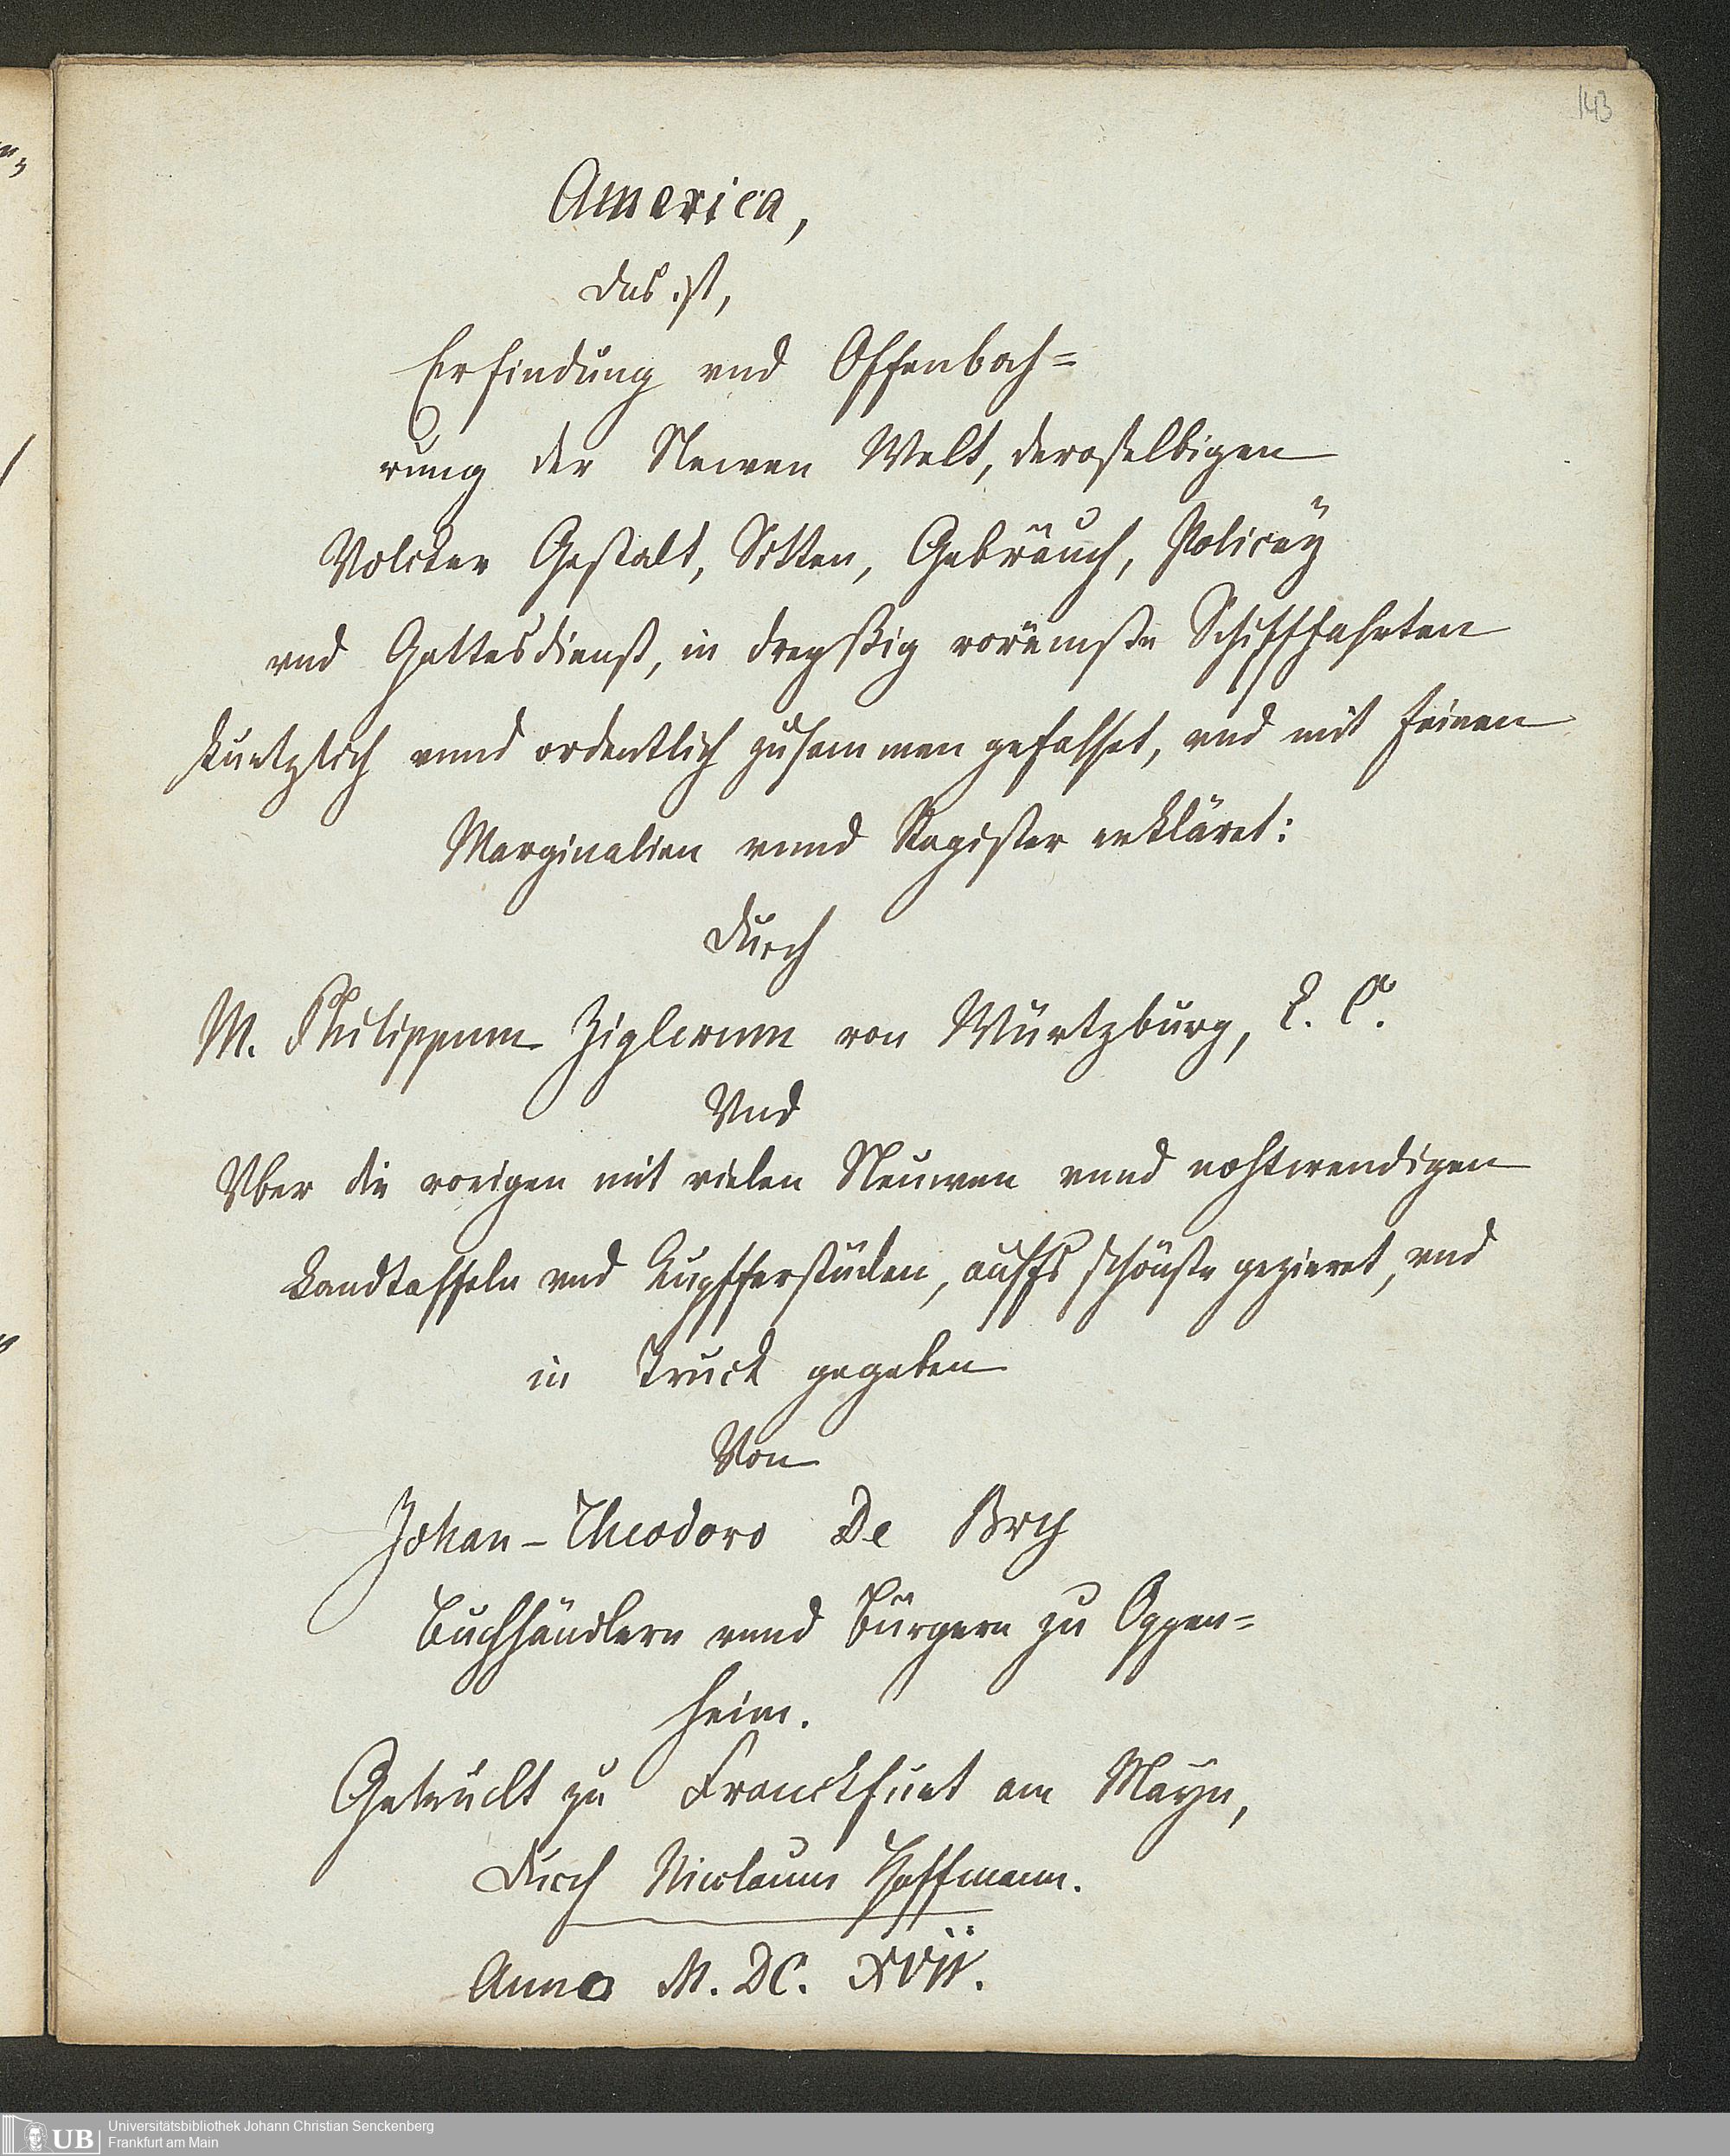 143
America,
Das ist,
Erfindung vnd Offenbah=
rung der Newen Welt, deroselbigen
Völcker Gestalt, Sitten, Gebräuch, Policey
vnd Gottesdienst, in dreyssig vornemste Schifffahrten
kurtzlich vnnd ordentlich zusammen gefasset, vnd mit feinen
Marginalien vnnd Register erkläret:
Durch
M. Philippum Ziglerum von Würtzburg, L. C.
Vnd
Vber die vorigen mit vielen Neuwen vnnd nohtwendigen
Landtaffeln vnd Kupfferstücken, auffs schönste gezieret, vnd
in Truck gegeben
Von
Johan-Theodoro De Bry
Buchhändlern vnnd Bürgern zu Oppen=
heim.
Getruckt zu Franckfurt am Mayn,
Durch Nicolaum Hoffmann.
Anno M. DC. XVII.
UB
Universitätsbibliothek Johann Christian Senckenberg
Frankfurt am Main